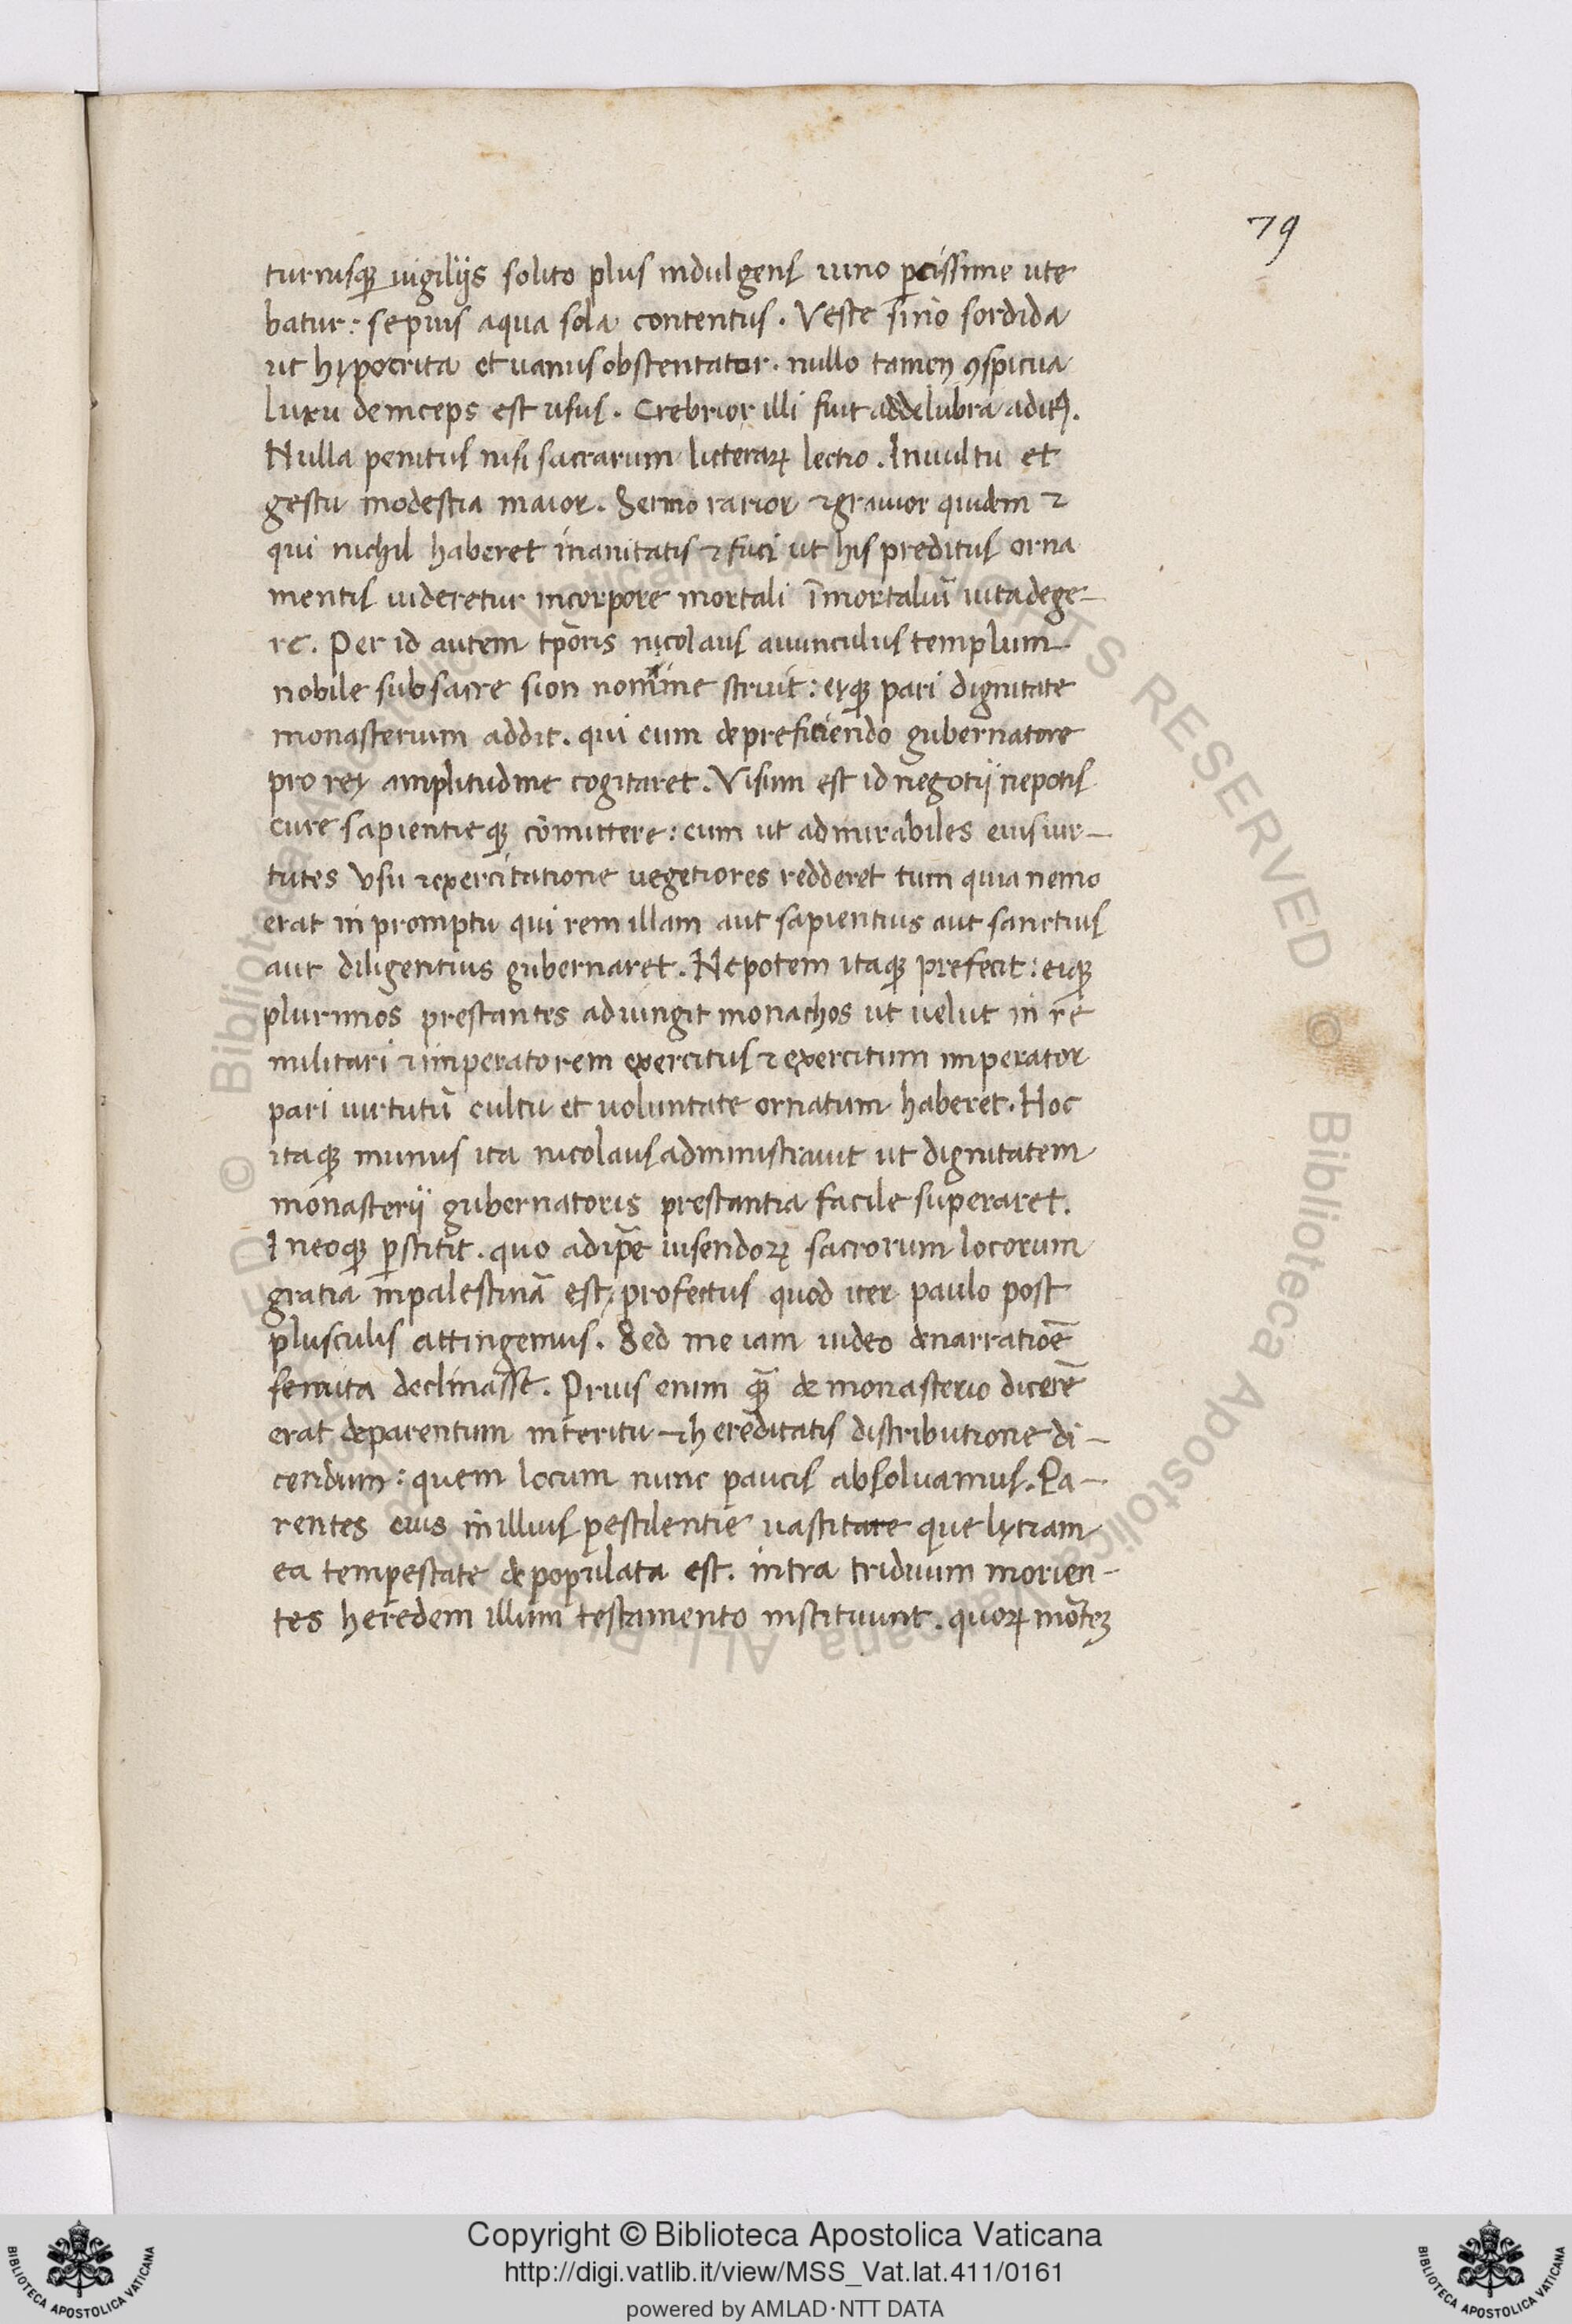 79
turnisqꝫ uigilijs solito plus indulgens uino ꝑcissime ute
batur: sepius aqua sola contentus. Veste sino sordida
ut hypocrita et uanus obstentator. nullo tamen ꝯspicua
luxu deinceps est usus. Crebrior illi fuit ad delubra aditꝰ.
Nulla penitus nisi sacrarum litterarꝝ lectio. In uultu et
gestu modestia maior. Sermo rarior ⁊ grauior quidem ⁊
qui nichil haberet inanitatis ⁊ fuci ut his preditus orna
mentis uideretur in corpore mortali īmortaliū uita dege-
re. Per id autem tp̄oris nicolaus auunculus templum
nobile sub sacre sion nomine struit: eiqꝫ pari dignitate
monasterium addit. qui cum de preficiendo gubernatore
pro rei amplitudine cogitaret. Visum est id negotij nepotis
cure sapientieqꝫ cōmittere: cum ut admirabiles eius uir-
tutes usu ⁊ exercitatione uegetiores redderet tum quia nemo
erat in promptu qui rem illam aut sapientius aut sanctius
aut diligentius gubernaret. Nepotem itaqꝫ prefecit: eiqꝫ
plurimos prestantes adiungit monachos ut uelut in re
militari ⁊ imperatorem exercitus ⁊ exercitum imperator
pari uirtutū cultu et uoluntate ornatum haberet. Hoc
itaqꝫ munus ita nicolaus administrauit ut dignitatem
monasterij gubernatoris prestantia facile superaret.
In eoqꝫ ꝑstitit. quo ad ip̄e uisendorꝝ sacrorum locorum
gratia in palestinā est profectus quod iter paulo post
plusculis attingemus. Sed me iam uideo de narratiōe
semita declinasse. Prius enim qꝫ̄ de monasterio dicerē
erat de parentum interitu ⁊ hereditatis distributione di-
cendum: quem locum nunc paucis absoluamus. Pa-
rentes eius in illius pestilentie uastitate que lyciam
ea tempestate depopulata est. intra triduum morien-
tes heredem illum testamento instituunt. quorꝝ mōtez
Copyright © Biblioteca Apostolica Vaticana
http://digi.vatlib.it/view/MSS_Vat.lat.411/0161
powered by AMLAD·NTT DATA